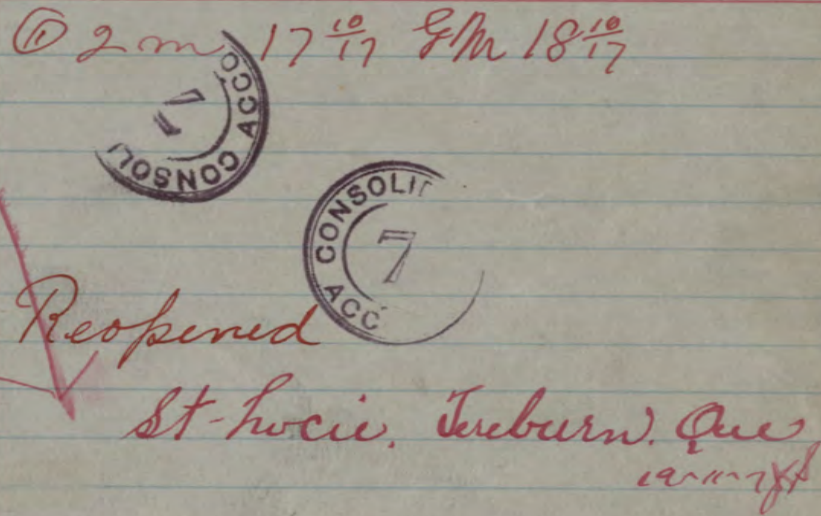 ① 2 m 17 10/17 GM 18 10/17
CONSOLI ACCO 7
CONSOLID ACC 7
Reopened
St-Lucie. Tereburn. Que